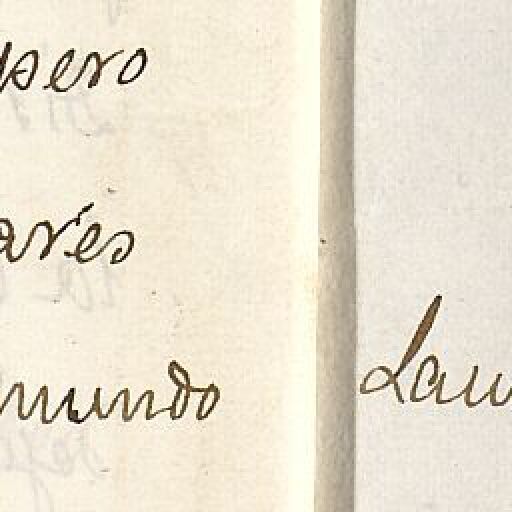 pero
arés
mundo
Lau